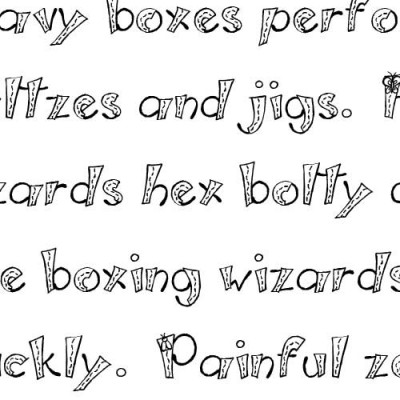 eavy boxes perfo
ltzes and jigs.
zards hex botty
e boxing wizards
uckly. Painful z